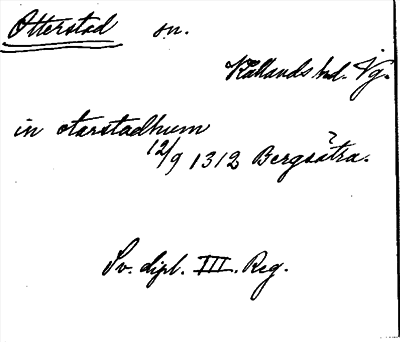 Otterstad sn.
Kållands hd. Vg.
in otarstadhum
12/9 1312 Bergsätra.
?
Sv. dipl. III. Reg.